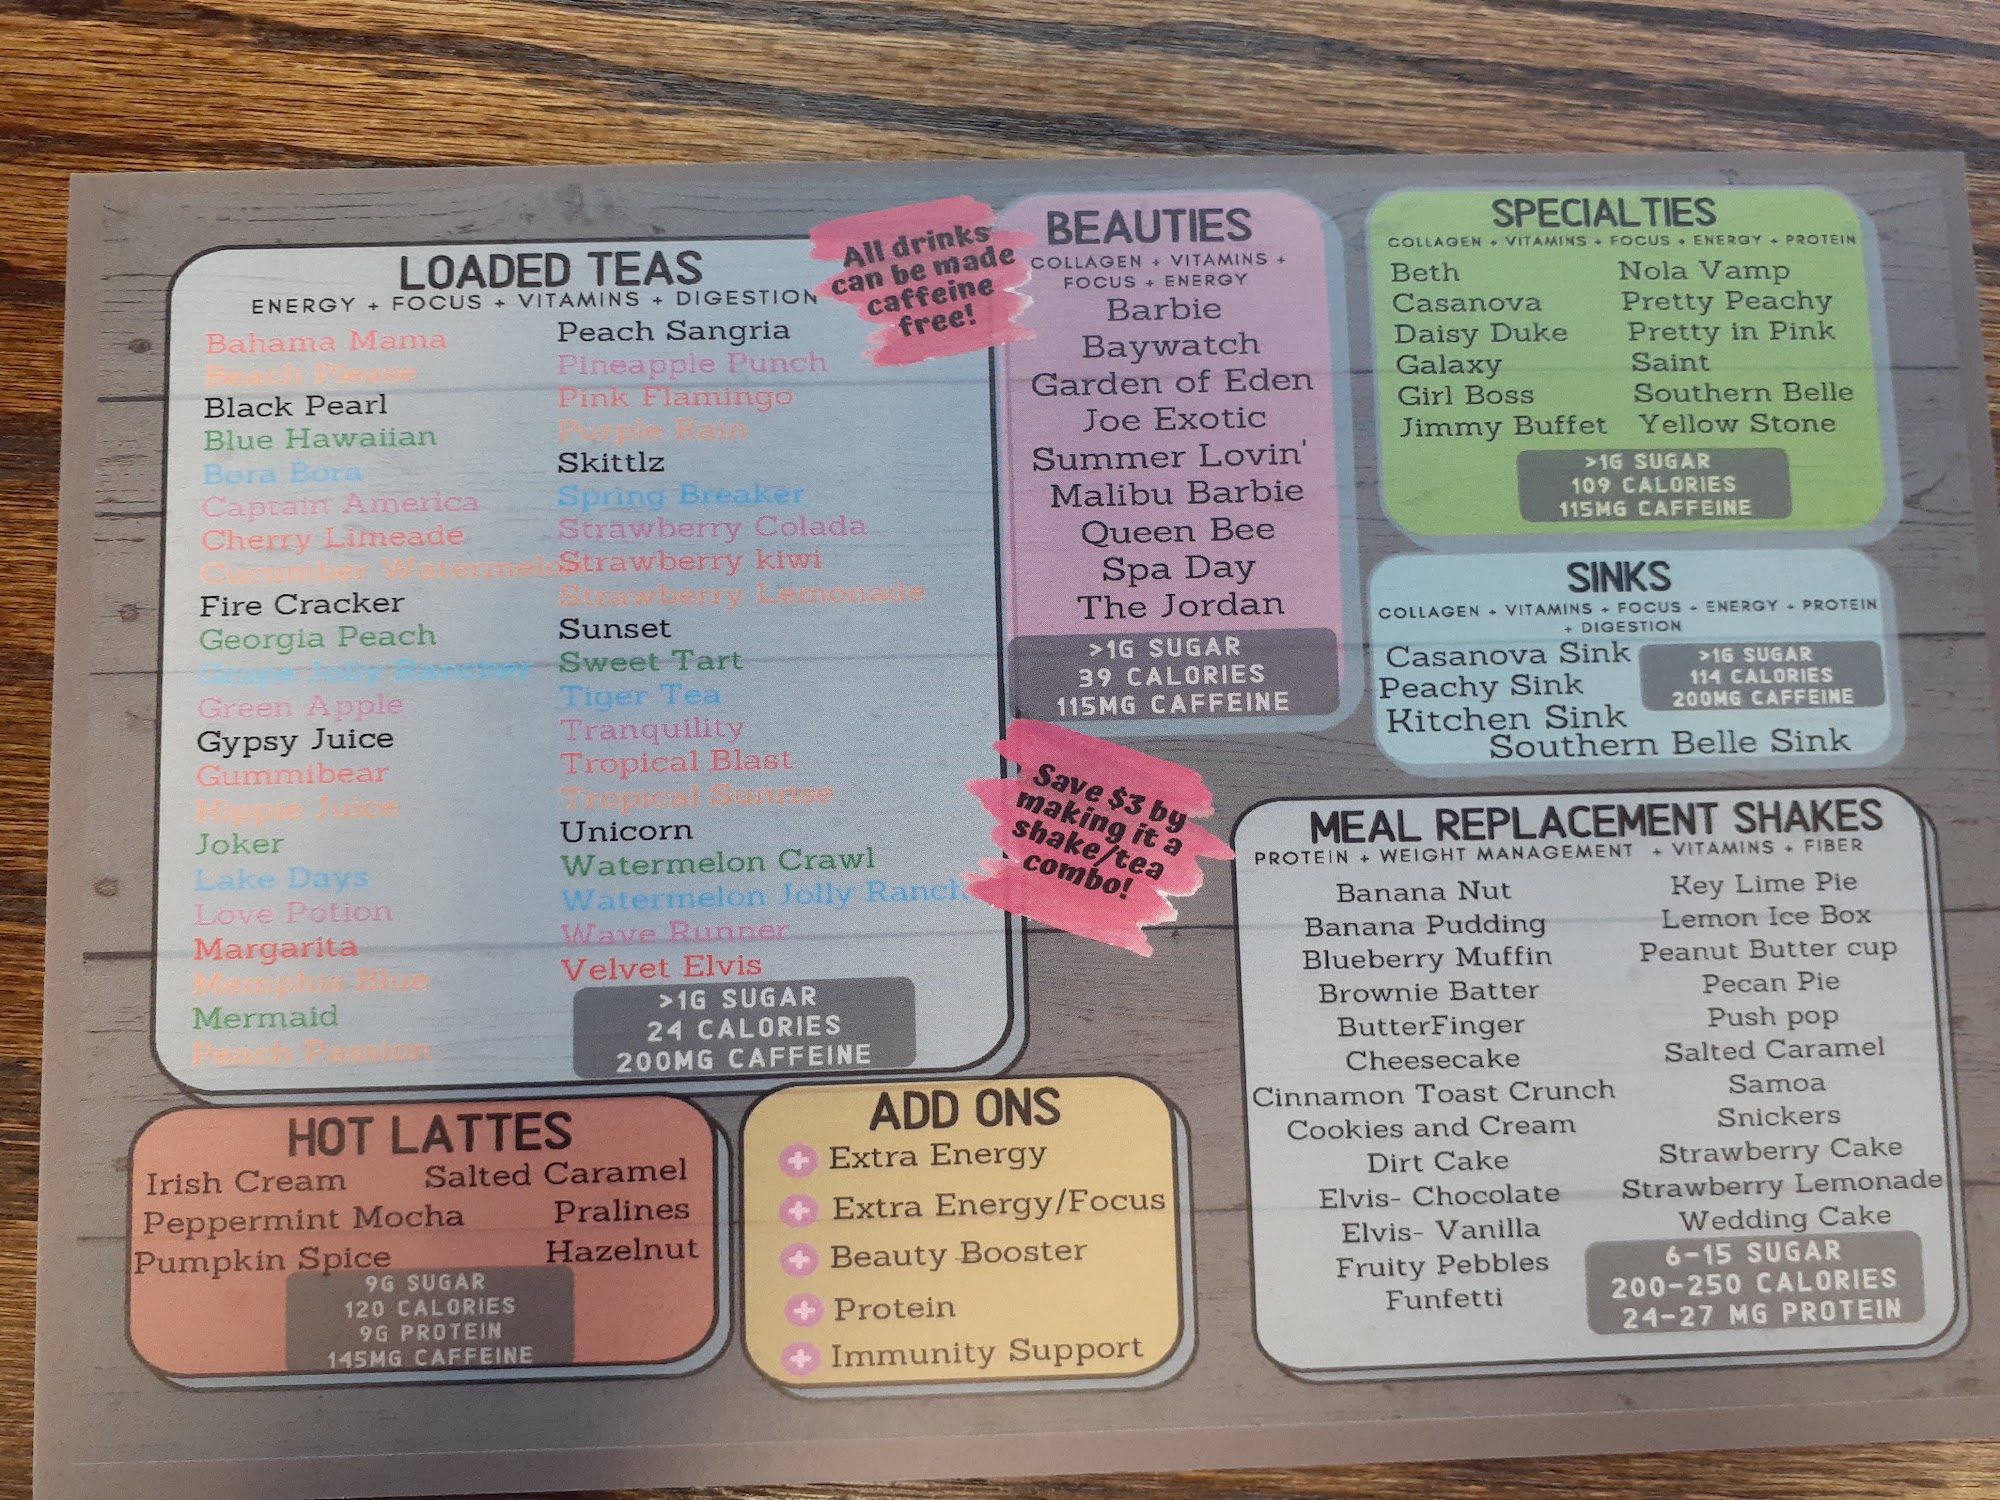 LOADED TEAS
ENERGY + FOCUS + VITAMINS + DIGESTION
Bahama Mama
Beach Please
Black Pearl
Blue Hawaiian
Bora Bora
Captain America
Cherry Limeade
Cucumber Watermelo
Fire Cracker
Georgia Peach
Grape Jolly Rancher
Green Apple
Gypsy Juice
Gummibear
Hippie Juice
Joker
Lake Days
Love Potion
Margarita
Memphis Blue
Mermaid
Peach Passion
Peach Sangria
Pineapple Punch
Pink Flamingo
Purple Rain
Skittlz
Spring Breaker
Strawberry Colada
Strawberry kiwi
Strawberry Lemonade
Sunset
Sweet Tart
Tiger Tea
Tranquility
Tropical Blast
Tropical Sunrise
Unicorn
Watermelon Crawl
Watermelon Jolly Ranch
Wave Runner
Velvet Elvis
>1G SUGAR
24 CALORIES
200MG CAFFEINE
All drinks
can be made
caffeine
free!
BEAUTIES
COLLAGEN + VITAMINS +
FOCUS + ENERGY
Barbie
Baywatch
Garden of Eden
Joe Exotic
Summer Lovin'
Malibu Barbie
Queen Bee
Spa Day
The Jordan
>1G SUGAR
39 CALORIES
115MG CAFFEINE
SPECIALTIES
COLLAGEN + VITAMINS + FOCUS + ENERGY + PROTEIN
Beth
Casanova
Daisy Duke
Galaxy
Girl Boss
Jimmy Buffet
Nola Vamp
Pretty Peachy
Pretty in Pink
Saint
Southern Belle
Yellow Stone
>1G SUGAR
109 CALORIES
115MG CAFFEINE
SINKS
COLLAGEN + VITAMINS + FOCUS + ENERGY + PROTEIN
+ DIGESTION
Casanova Sink
Peachy Sink
Kitchen Sink
Southern Belle Sink
>1G SUGAR
114 CALORIES
200MG CAFFEINE
Save $3 by
making it a
shake/tea
combo!
MEAL REPLACEMENT SHAKES
PROTEIN + WEIGHT MANAGEMENT + VITAMINS + FIBER
Banana Nut
Banana Pudding
Blueberry Muffin
Brownie Batter
ButterFinger
Cheesecake
Cinnamon Toast Crunch
Cookies and Cream
Dirt Cake
Elvis- Chocolate
Elvis- Vanilla
Fruity Pebbles
Funfetti
Key Lime Pie
Lemon Ice Box
Peanut Butter cup
Pecan Pie
Push pop
Salted Caramel
Samoa
Snickers
Strawberry Cake
Strawberry Lemonade
Wedding Cake
6-15 SUGAR
200-250 CALORIES
24-27 MG PROTEIN
HOT LATTES
Irish Cream
Peppermint Mocha
Pumpkin Spice
Salted Caramel
Pralines
Hazelnut
9G SUGAR
120 CALORIES
9G PROTEIN
145MG CAFFEINE
ADD ONS
Extra Energy
Extra Energy/Focus
Beauty Booster
Protein
Immunity Support